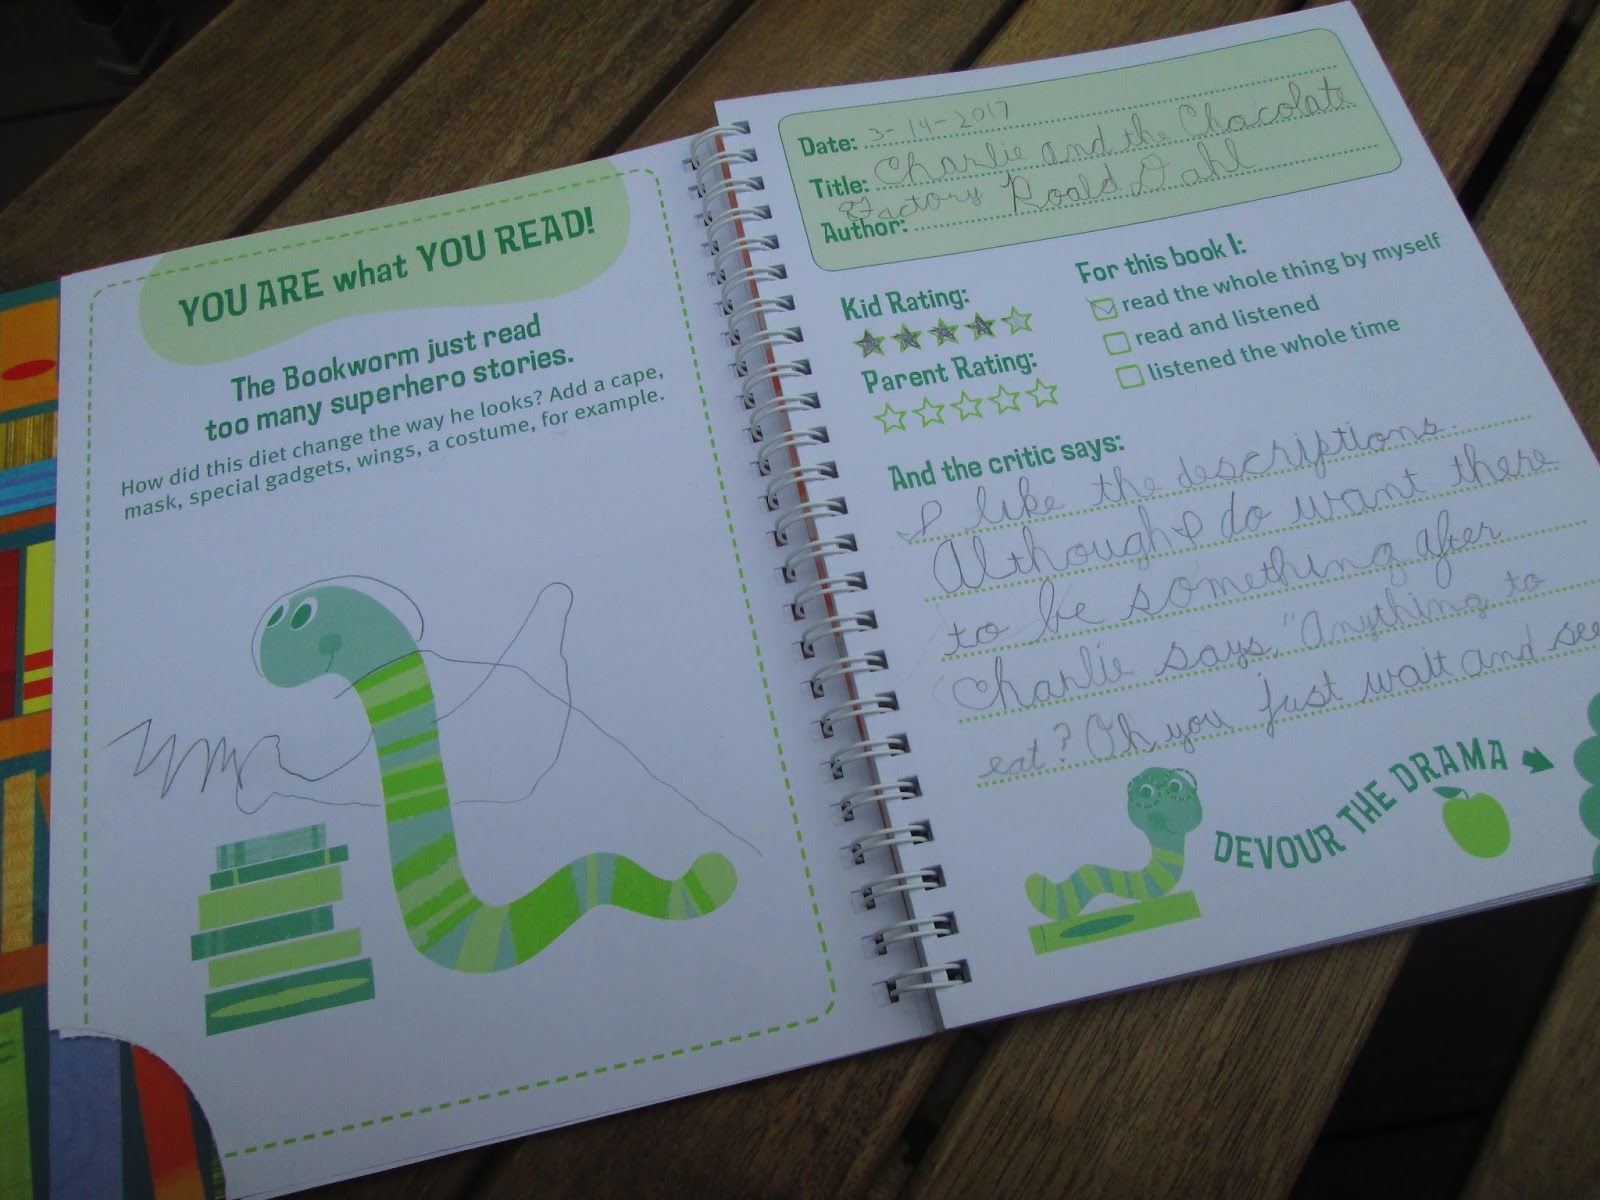 YOU ARE what YOU READ!
The Bookworm just read
too many superhero stories.
How did this diet change the way he looks? Add a cape,
mask, special gadgets, wings, a costume, for example.
Date: 3-14-2017
Title: Charlie and the Chocolate
Factory Roald Dahl
Author:
Kid Rating:
Parent Rating:
For this book I:
read the whole thing by myself
read and listened
listened the whole time
And the critic says:
I like the descriptions.
Although I do want there
to be something after
Charlie says, "Anything to
eat? Oh you just wait and see
DEVOUR THE DRAMA